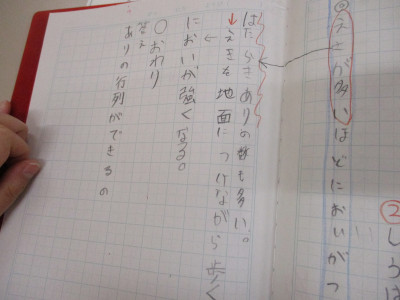 ②しかは
◎えさが多いほどにおいがつ
はたらきありの数も多い。
↓えきを地面につけながら歩く
←
においが強くなる。
○おわり
答え
ありの行列ができるの